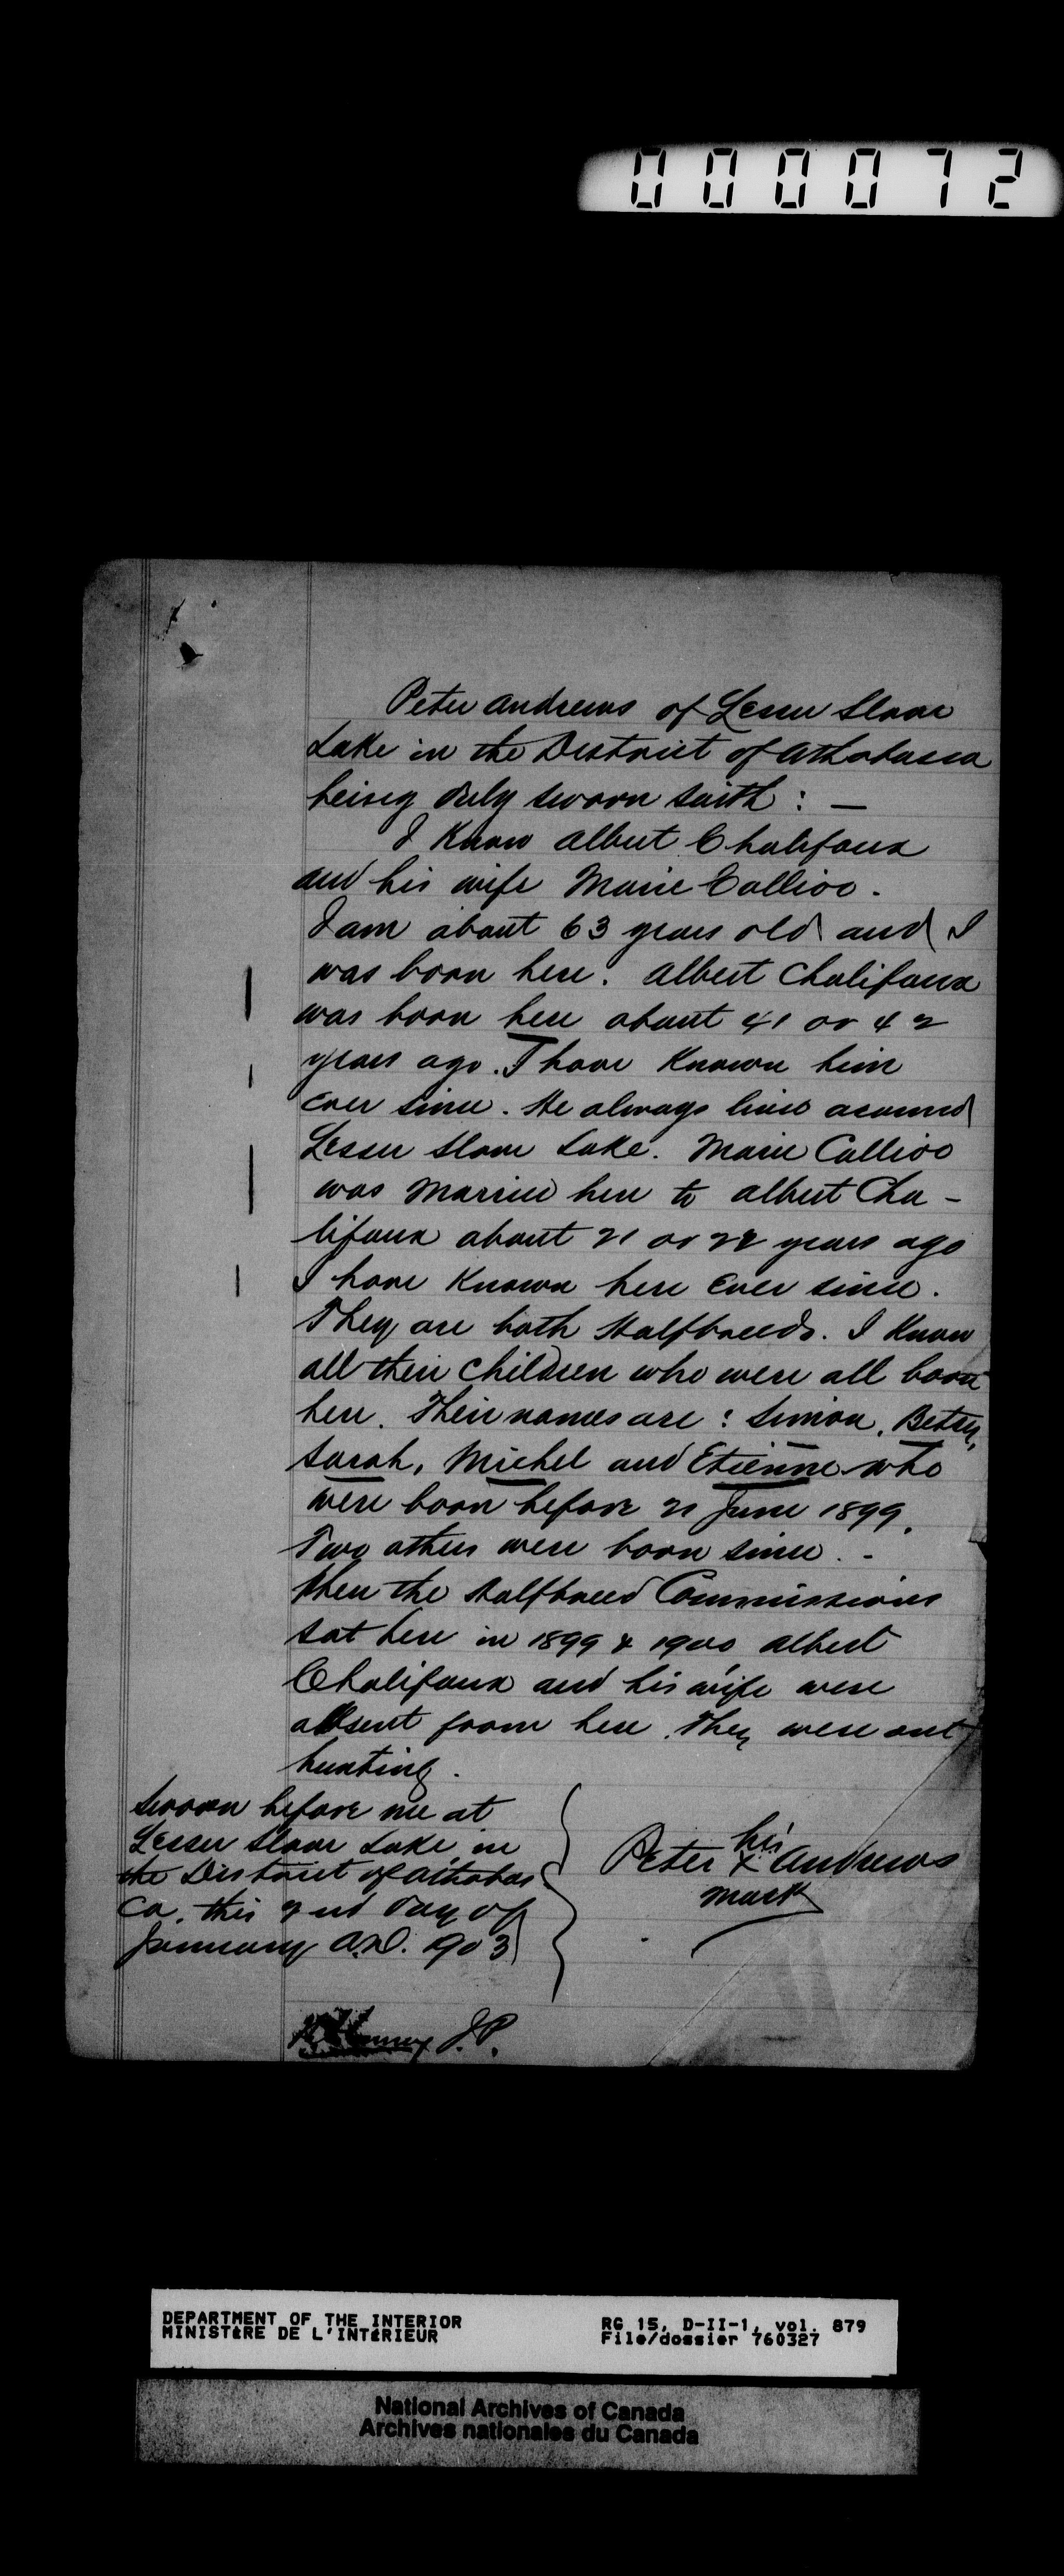 000072
Peter Andrews of Lesser Slave
Lake in the District of Athabasca
being duly sworn saith : —
I know Albert Chalifoux
and his wife Marie Callioo.
I am about 63 years old and I
was born here. Albert Chalifoux
was born here about 41 or 42
years ago. I have known him
ever since. He always lives around
Lesser Slave Lake. Marie Callioo
was married here to Albert Cha-
lifoux about 21 or 22 years ago
I have known here ever since.
They are both Halfbreeds. I know
all their children who were all born
here. Their names are : Simon, Betsy,
Sarah, Michel and Etienne who
were born before 21 June 1899.
Two others were born since. -
When the Halfbreed Commissions
sat here in 1899 & 1900 Albert
Chalifoux and his wife were
absent from here. They were out
hunting.
Sworn before me at
Lesser Slave Lake in
the District of Athabas
ca. this 2nd day of
January A.D. 1903
Peter his x mark Andrews
J.P.
DEPARTMENT OF THE INTERIOR
MINISTÈRE DE L'INTÉRIEUR
RG 15, D-II-1, vol. 879
File/dossier 760327
National Archives of Canada
Archives nationales du Canada